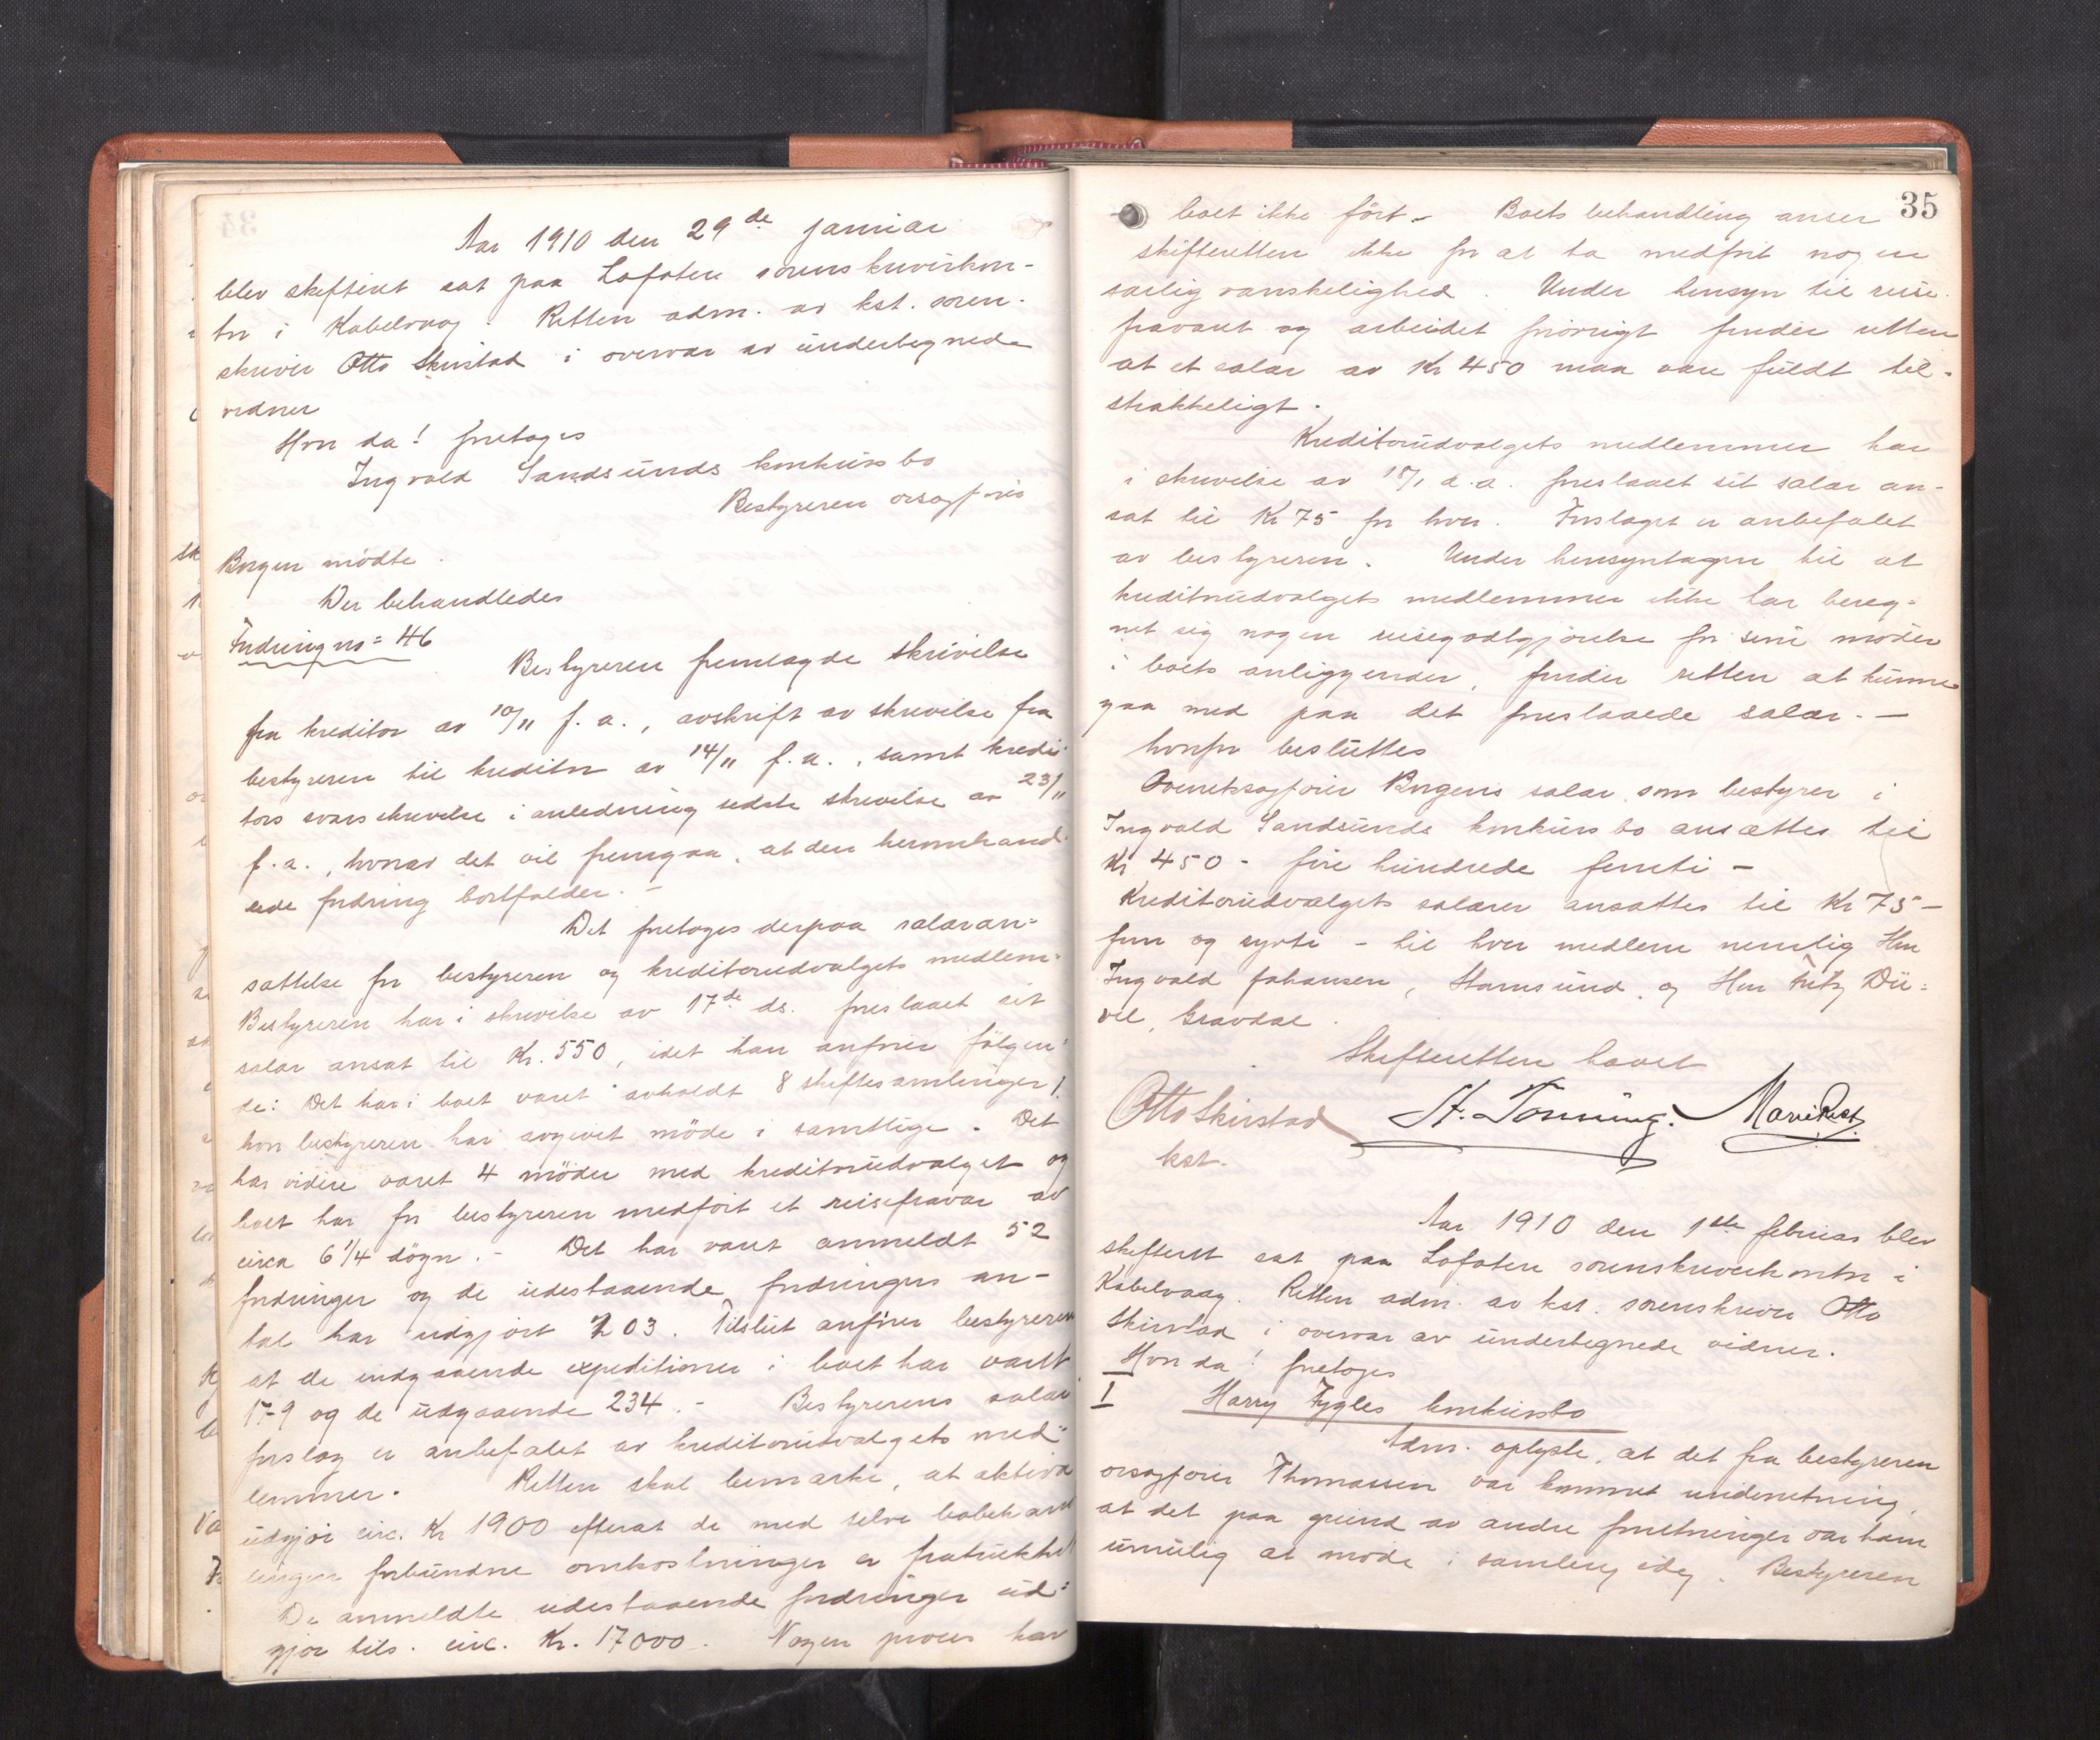 Aar 1910 den 29de januar
blev skifteret sat paa Lofoten sorenskriverkon-
tor i Kabelvaag. Retten adm. av kst. soren-
skriver Otto Skirstad i overvær av undertegnede
vidner
Hvor da! foretoges
Ingvald Sandsunds konkursbo
Bestyreren orsagfører
Borgen mødte.
Der behandledes
Fordring no= 46
Bestyreren fremlagde skrivelse
fra kreditor av 10/11 f. a., avskrift av skrivelse fra
bestyreren til kreditor av 14/11 f. a., samt kredi-
tors svarskrivelse i anledning sidste skrivelse av 23/11
f. a., hvorav det vil fremgaa, at den heromhand-
lede fordring bortfalder. -
Det foretoges derpaa salæran-
sættelse for bestyreren og kreditorudvalgets medlem-
Bestyreren har i skrivelse av 17de ds. foreslaaet sit
salær ansat til Kr. 550, idet han anfører følgen-
de: Det har i boet været avholdt 8 skiftesamlinger,
hvor bestyreren har avgivet møde i samtlige. Det
har videre været 4 møder med kreditorudvalget og
boet har for bestyreren medført et reisefravær av
circa 6 1/4 døgn. - Det har været anmeldt 52
fordringer og de udestaaende fordringers an-
tal har udgjort 203. Tilslut anfører bestyreren
at de indgaaende expeditioner i boet har været
179 og de udgaaende 234. - Bestyrerens salær
forslag er anbefalet av kreditorudvalgets med-
lemmer. Retten skal bemærke, at aktiva
udgjør circ. Kr 1900 efterat de med selve bobehand
lingen forbundne omkostninger er fratrukket
De anmeldte udestaaende fordringer ud-
gjør tils. circ. Kr. 17000. Nogen proces har
35
boet ikke ført - Boets behandling anser
skifteretten ikke for at ha medført nogen
særlig vanskelighed. Under hensyn til reise-
fraværet og arbeidet forøvrigt finder retten
at et salær av Kr 450 maa være fuldt til-
strækkeligt.
Kreditorudvalgets medlemmer har
i skrivelse av 18/1 d. a. foreslaaet sit salær an-
sat til Kr 75 for hver. Forslaget er anbefalet
av bestyreren. Under hensyntagen til at
kreditorudvalgets medlemmer ikke har bereg-
net sig nogen reisegodtgjørelse for sine møder
i boets anliggender, finder retten at kunne
gaa med paa det foreslaaede salær. -
hvorfor besluttes
Overretssagfører Borgens salær som bestyrer i
Ingvald Sandsunds konkursbo ansættes til
Kr 450 - fire hundrede femti -
Kreditorudvalgets salærer ansættes til Kr 75 -
fem og sytti - til hver medlem nemlig Hrr
Ingvald Johansen, Stamsund, og Hrr Fritz Dü-
vel, Gravdal.
Skifteretten hævet
Otto Skirstad H. Tønning. Marie Rist.
kst.
Aar 1910 den 1ste februar blev
skifteret sat paa Lofoten sorenskriverkontor i
Kabelvaag. Retten adm. av kst. sorenskriver Otto
Skirstad i overvær av undertegnede vidner.
Hvor da! foretoges
I Harry Fygles konkursbo
Adm. oplyste, at det fra bestyreren
orsagfører Thomassen var kommet underretning,
at det paa grund av andre forretninger var ham
umulig at møde i samling idag. Bestyreren